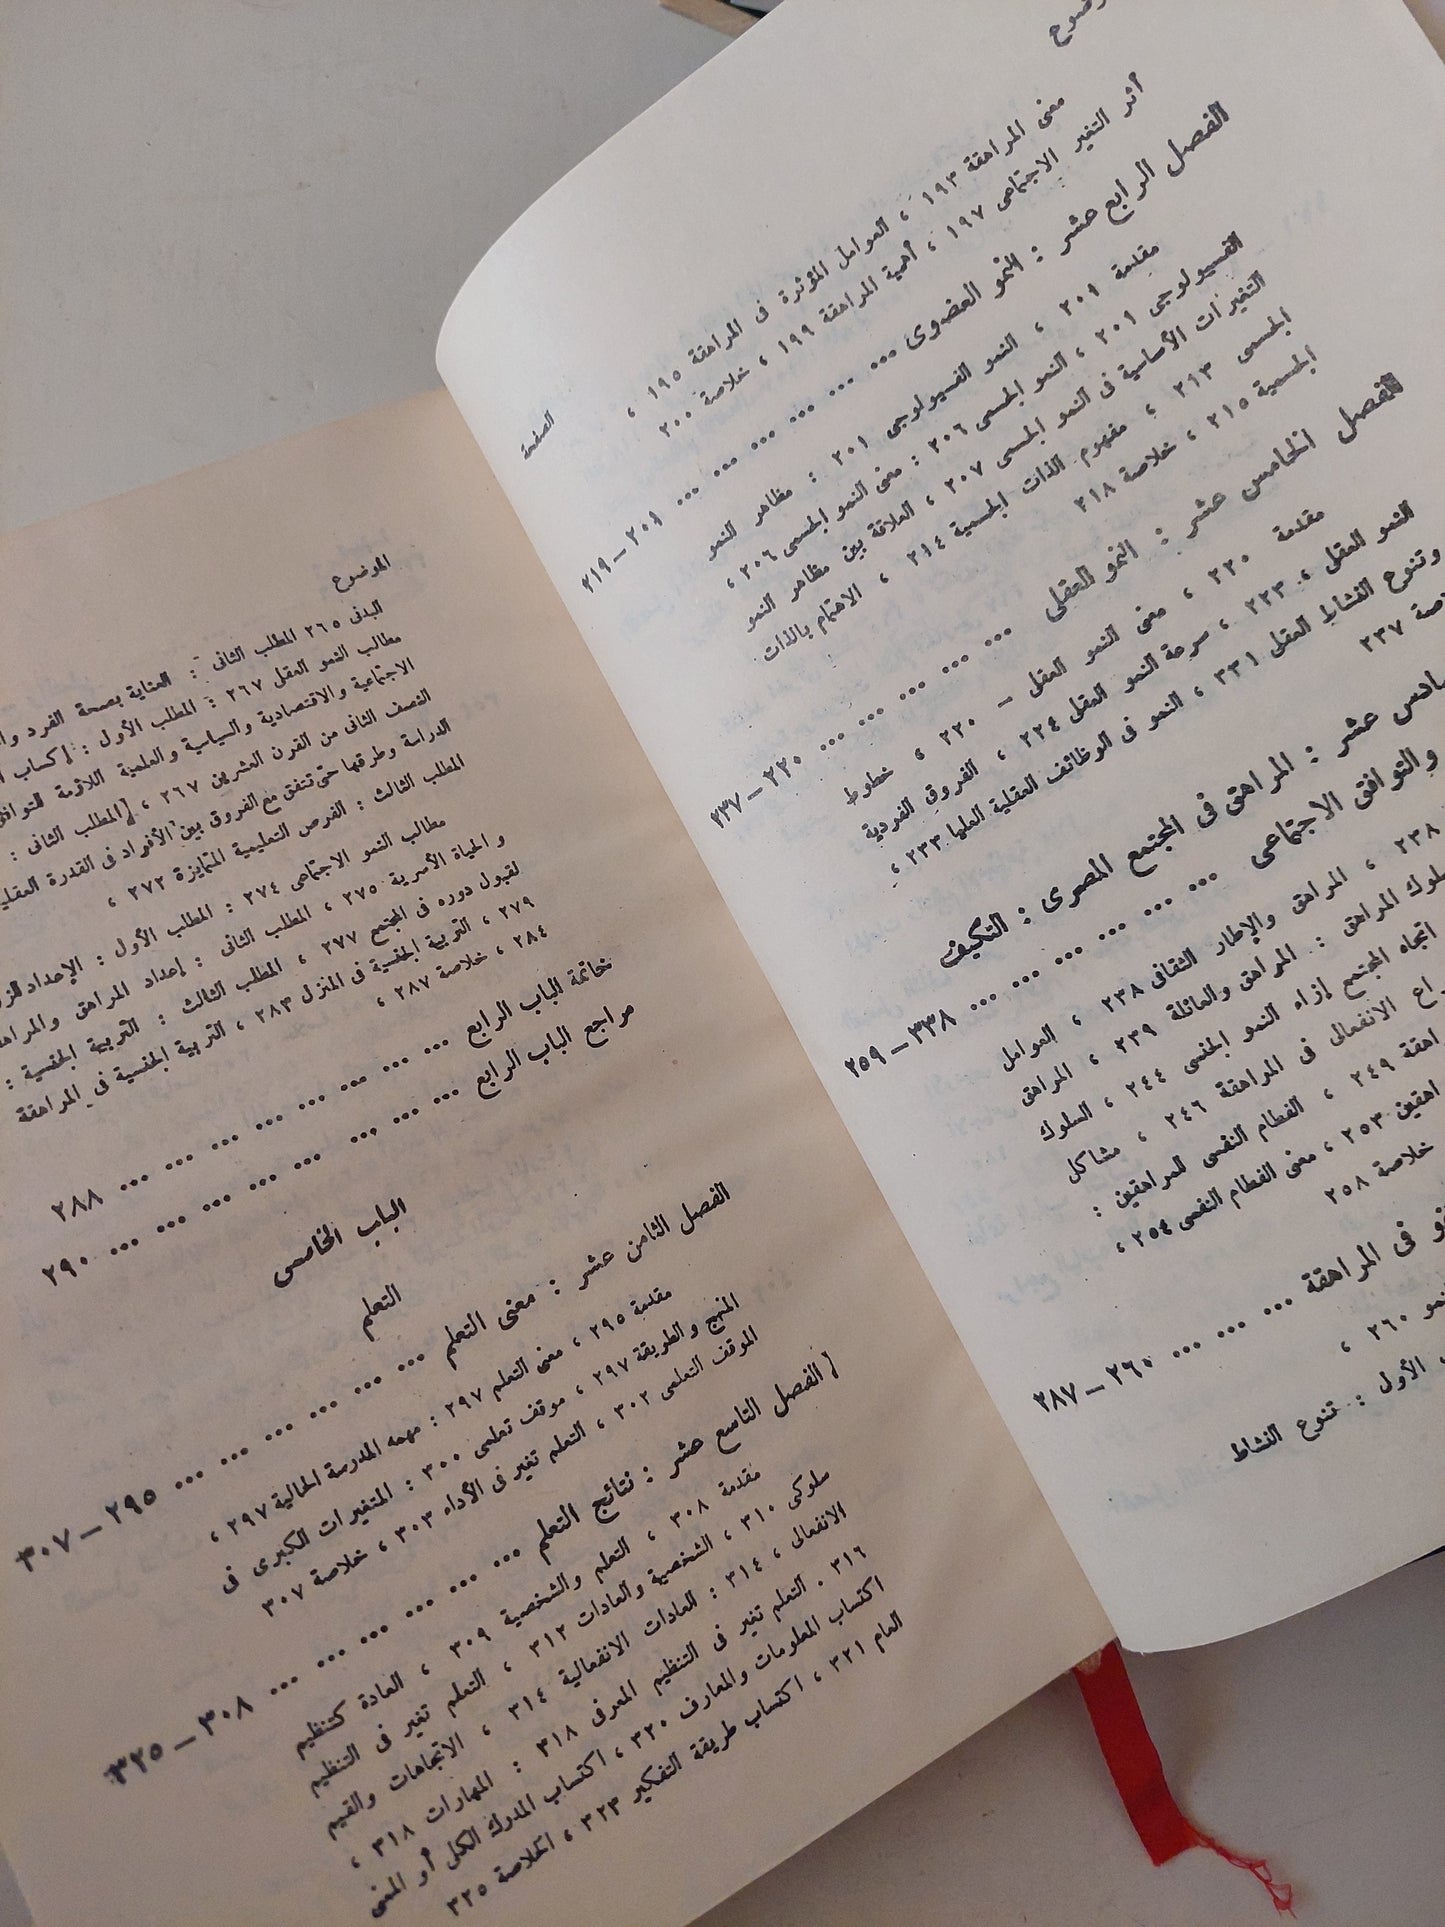 الصفحة
معنى المراهقة ١٩٣ ، العوامل المؤثرة فى المراهقة ١٩٥ ،
أثر التغير الاجتماعى ١٩٧ ، أهمية المراهقة ١٩٩ ، خلاصة ٢٠٠
الفصل الرابع عشر : النمو العضوى ... ... ... ... ... ... ... ٢٠١ – ٢١٩
مقدمة ٢٠١ ، النمو الفسيولوجى ٢٠١ : مظاهر النمو
الفسيولوجى ٢٠١ ، النمو الجسمى ٢٠٦ : معنى النمو الجسمى ٢٠٦ ،
التغيرات الأساسية فى النمو الجسمى ٢٠٧ ، العلاقة بين مظاهر النمو
الجسمى ٢١٣ ، مفهوم الذات الجسمية ٢١٤ ، الاهتمام بالذات
الجسمية ٢١٥ ، خلاصة ٢١٨
الفصل الخامس عشر : النمو العقلى ... ... ... ... ... ... ٢٢٠ – ٢٣٧
مقدمة ٢٢٠ ، معنى النمو العقلى – ٢٢٠ ، خطوط
النمو العقلى ، ٢٢٣ ، سرعة النمو العقلى ٢٢٤ ، الفروق الفردية
وتنوع النشاط العقلى ٢٣١ ، النمو فى الوظائف العقلية العليا ٢٣٣ ،
٢٣٧
عشر : المراهق فى المجتمع المصرى : التكيف
والتوافق الاجتماعى ... ... ... ... ... ... ٢٣٨ – ٢٥٩
٢٣٨ ، المراهق والإطار الثقافى ٢٣٨ ، العوامل
المراهق : المراهق والعائلة ٢٣٩ ، المراهق
اتجاه المجتمع إزاء النمو الجنسى ٢٤٤ ، السلوك
الانفعالى فى المراهقة ٢٤٦ ، مشاكل
٢٤٩ ، الفطام النفسى للمراهقين :
٢٥٣ ، معنى الفطام النفسى ٢٥٤ ،
خلاصة ٢٥٨
فى المراهقة ... ... ... ... ٢٦٠ – ٢٨٧
٢٦٠ ،
الأول : تنوع النشاط
الموضوع
البدنى ٢٦٥ المطلب الثانى : العناية بصحة الفرد
مطالب النمو العقلى ٢٦٧ : المطلب الأول : إكساب
الاجتماعية والاقتصادية والسياسية والعلمية اللازمة للتوافق
النصف الثانى من القرن العشرين ٢٦٧ ، المطلب الثانى :
الدراسة وطرقها حتى تتفق مع الفروق بين الأفراد فى القدرة العقلية
المطلب الثالث : الفرص التعليمية المتمايزة ٢٧٢ ،
مطالب النمو الاجتماعى ٢٧٤ : المطلب الأول : الإعداد
والحياة الأسرية ٢٧٥ ، المطلب الثانى : إعداد المراهق
لقبول دوره فى المجتمع ٢٧٧ ، المطلب الثالث : التربية الجنسية :
٢٧٩ ، التربية الجنسية فى المنزل ٢٨٣ ، التربية الجنسية فى المراهقة
٢٨٤ ، خلاصة ٢٨٧ ،
خاتمة الباب الرابع ... ... ... ... ... ... ... ... ٢٨٨
مراجع الباب الرابع ... ... ... ... ... ... ... ... ٢٩٠
الباب الخامس
التعلم
الفصل الثامن عشر : معنى التعلم ... ... ... ... ... ... ... ٢٩٥ – ٣٠٧
مقدمة ٢٩٥ ، معنى التعلم ٢٩٧ : مهمه المدرسة الحالية ٢٩٧ ،
المنهج والطريقة ٢٩٧ ، موقف تعلمى ٣٠٠ : المتغيرات الكبرى فى
الموقف التعلمى ٣٠٢ ، التعلم تغير فى الأداء ٣٠٣ ، خلاصة ٣٠٧
الفصل التاسع عشر : نتائج التعلم ... ... ... ... ... ... ... ٣٠٨ – ٣٢٥
مقدمة ٣٠٨ ، التعلم والشخصية ٣٠٩ ، العادة كتنظيم
سلوكى ٣١٠ ، الشخصية والعادات ٣١٢ ، التعلم تغير فى التنظيم
الانفعالى ، ٣١٤ : العادات الانفعالية ٣١٤ ، الاتجاهات والقيم
٣١٦ . التعلم تغير فى التنظيم المعرفى ٣١٨ : المهارات ٣١٨ ،
اكتساب المعلومات والمعارف ٣٢٠ ، اكتساب المدرك الكلى أو المعنى
العام ٣٢١ ، اكتساب طريقة التفكير ٣٢٣ ، الخلاصة ٣٢٥